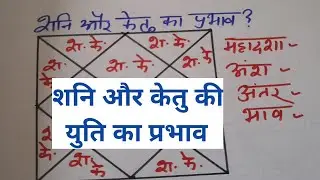 शनि और केतु का प्रभाव ?
श. के.
श. के.
श. के.
महादशा -
अंश -
अंतर -
भाव -
शनि और केतु की
युति का प्रभाव
श. के.
श. के.
श. के.
श. के.